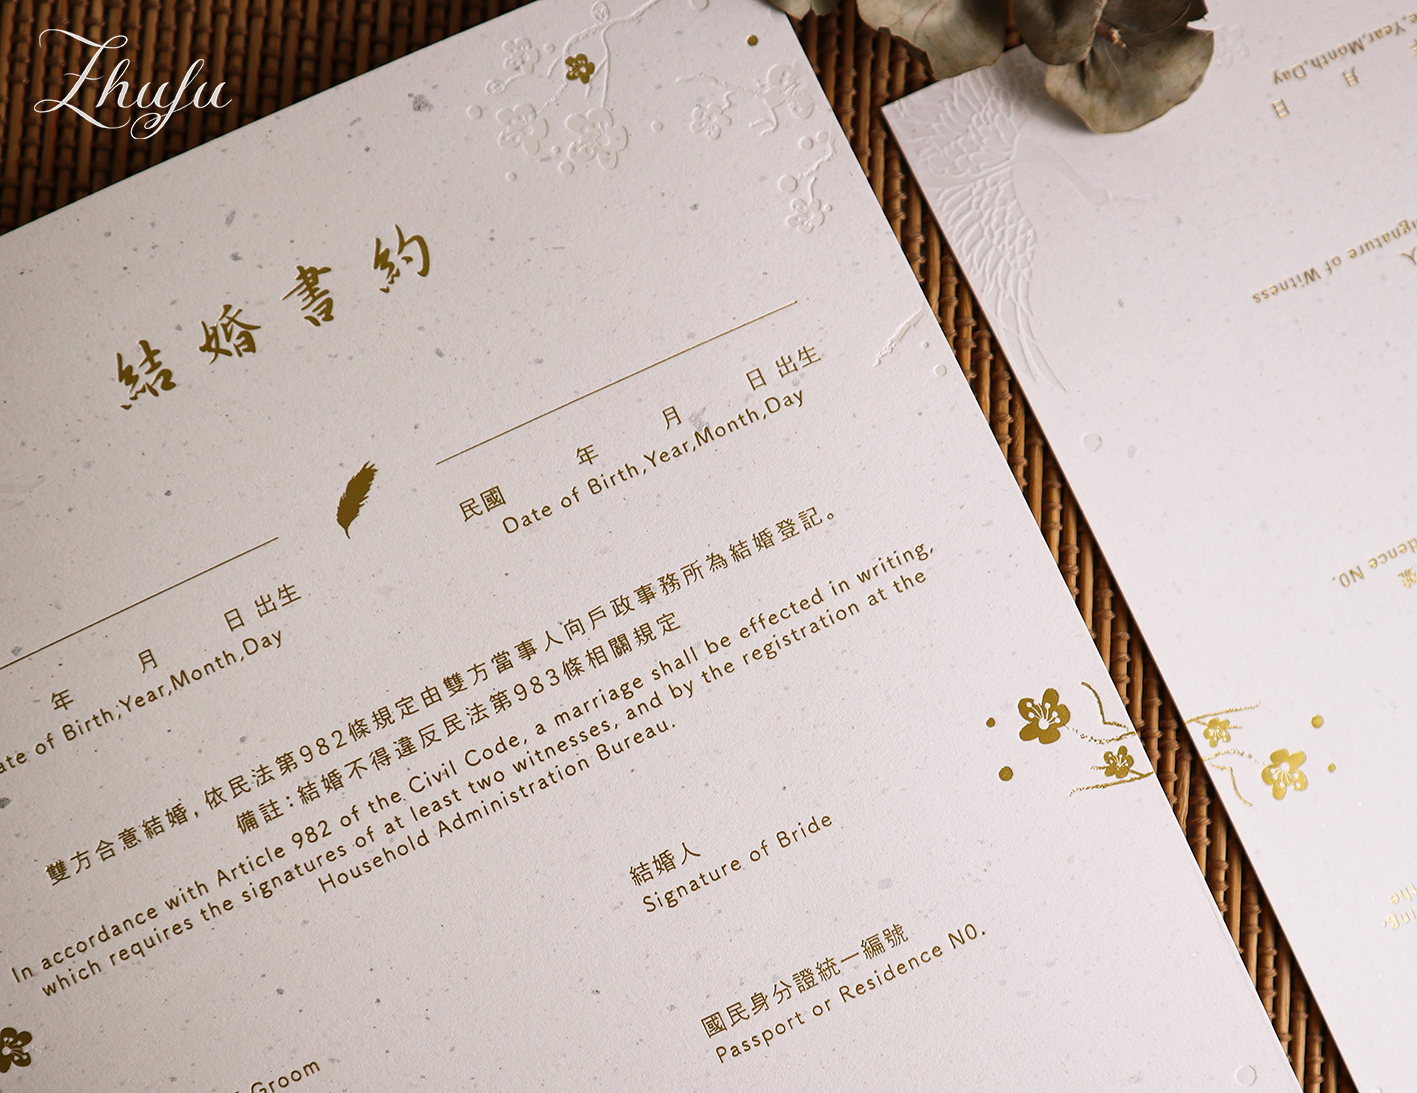 Zhufu
結婚書約
民國 年 月 日 出生
Date of Birth,Year,Month,Day
年 月 日 出生
ate of Birth,Year,Month,Day
雙方合意結婚，依民法第982條規定由雙方當事人向戶政事務所為結婚登記。
備註：結婚不得違反民法第983條相關規定
In accordance with Article 982 of the Civil Code, a marriage shall be effected in writing,
which requires the signatures of at least two witnesses, and by the registration at the
Household Administration Bureau.
結婚人
Signature of Bride
國民身分證統一編號
Passport or Residence N0.
Groom
年 月 日
e,Year,Month,Day
人
ignature of Witness
號
dence N0.
ing,
the